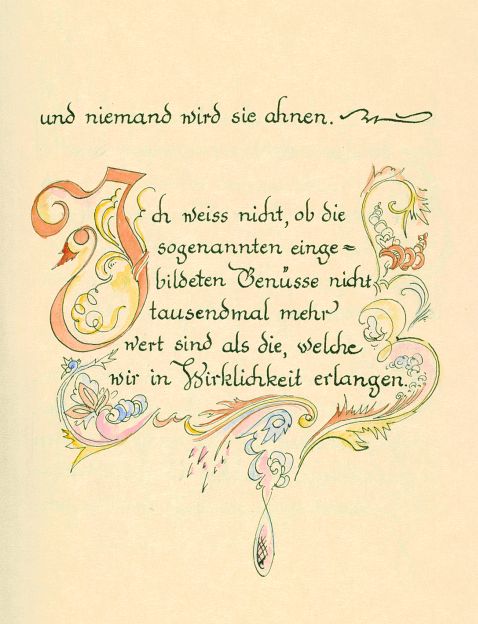 und niemand wird sie ahnen.
Ich weiss nicht, ob die
sogenannten einge=
bildeten Genüsse nicht
tausendmal mehr
wert sind als die, welche
wir in Wirklichkeit erlangen.